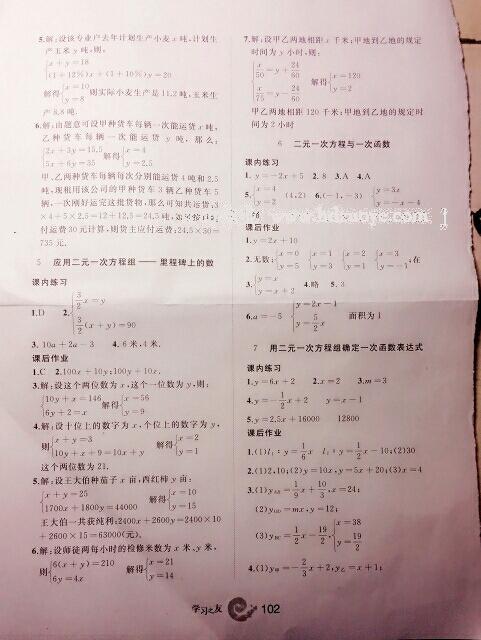 5.解:设该专业户去年计划生产小麦 x 吨,计划生
产玉米 y 吨,则:
{x+y=18
(1+12%)x+(1+10%)y=20
解得{x=10
y=8 则实际小麦生产是 11.2 吨,玉米生
产 8.8 吨.
6.解:由题意可设甲种货车每辆一次能运货 x 吨,
乙种货车每辆一次能运货 y 吨,那么:
{2x+3y=15.5
5x+6y=35 解得{x=4
y=2.5
甲、乙两种货车每辆每次分别能运货 4 吨和 2.5
吨,现租用该公司的甲种货车 3 辆乙种货车 5
辆,一次刚好运完这批货物,那么可知共运货:3
×4+5×2.5=12+12.5=24.5 吨,如果按每吨
付运费 30 元计算,则货主应付运费:24.5×30=
735 元.
5 应用二元一次方程组——里程碑上的数
课内练习
1.D 2.{3/2 x=y
3/2(x+y)=90
3.10a+2a-3 4.6 米,4 米.
课后作业
1.C 2.100x+10y;100y+10x.
3.解:设这个两位数为 x,这个一位数为 y,则:
{10y+x=146
6y+2=x 解得{x=56
y=9
4.解:设十位上的数字为 x,个位上的数字为 y,
则{x+y=3
10y+x+9=10x+y 解得{x=2
y=1
这个两位数为 21.
5.解:设王大伯种茄子 x 亩,西红柿 y 亩:
{x+y=25
1700x+1800y=44000 解得{x=10
y=15
王大伯一共获纯利:2400x+2600y=2400×10
+2600×15=63000(元).
6.解:设师徒两每小时的检修米数为 x 米,y 米,
则{6(x+y)=210
6y=4x 解得{x=21
y=14
7.解:设甲乙两地相距 x 千米;甲地到乙地的规定
时间为 y 小时,则:
{x/50=y+24/60
x/75=y-24/60 解得{x=120
y=2
甲乙两地相距 120 千米;甲地到乙地的规定时
间为 2 小时
6 二元一次方程与一次函数
课内练习
1.y=-2x+5 2.8 3.A 4.A
5.{x=4
y=2 (4,2) 6.(-1,-3) {y=3x
y=-x-4
课后作业
1.y=2x+10
2.无数;{x=0
y=5 {x=1
y=3 {x=2
y=1 {x=3
y=-1;在
3.{y=x
y=-x+2 4.略 5.3
6.a=-5 {y=2x-1
y=5/2 x 面积为 1
7 用二元一次方程组确定一次函数表达式
课内练习
1.y=6x+2 2.x=2 3.m=3
4.y=-1/2 x+2 y=-x
5.y=2.5x+16000 12800
课后作业
1.(1)l₁:y=1/6 x l₂:y=1/2 x-10;(2)30
2.(1)2,10;(2)y=10x,y=5x+20;(3)x=4
3.(1)y=1/9 x+10/3,x=24;
(2)y=mx,y=12;
(3)y=1/2 x-19/2,{x=38
y=19/2
4.(1)y甲=-2/3 x+2,y乙=x+1;
学习之友 102